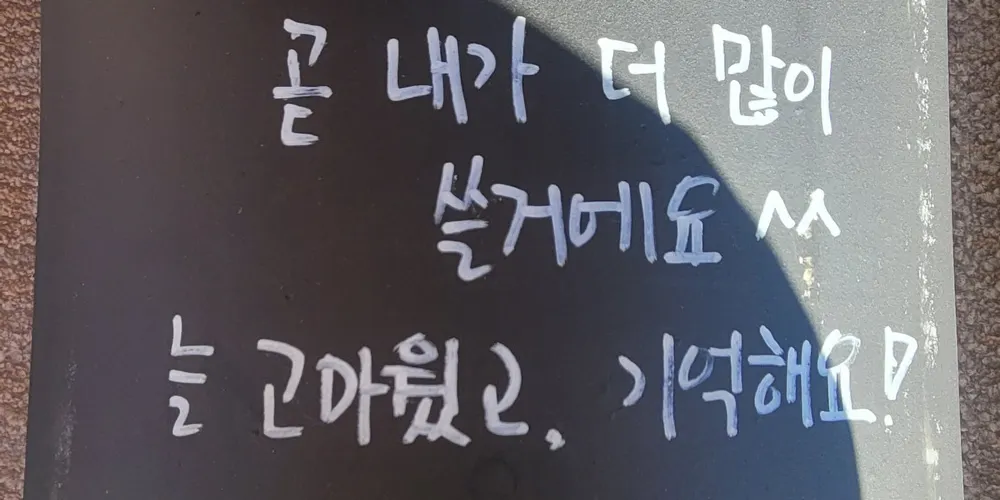 곧 내가 더 많이
쓸거에요 ^^
늘 고마웠고, 기억해요!